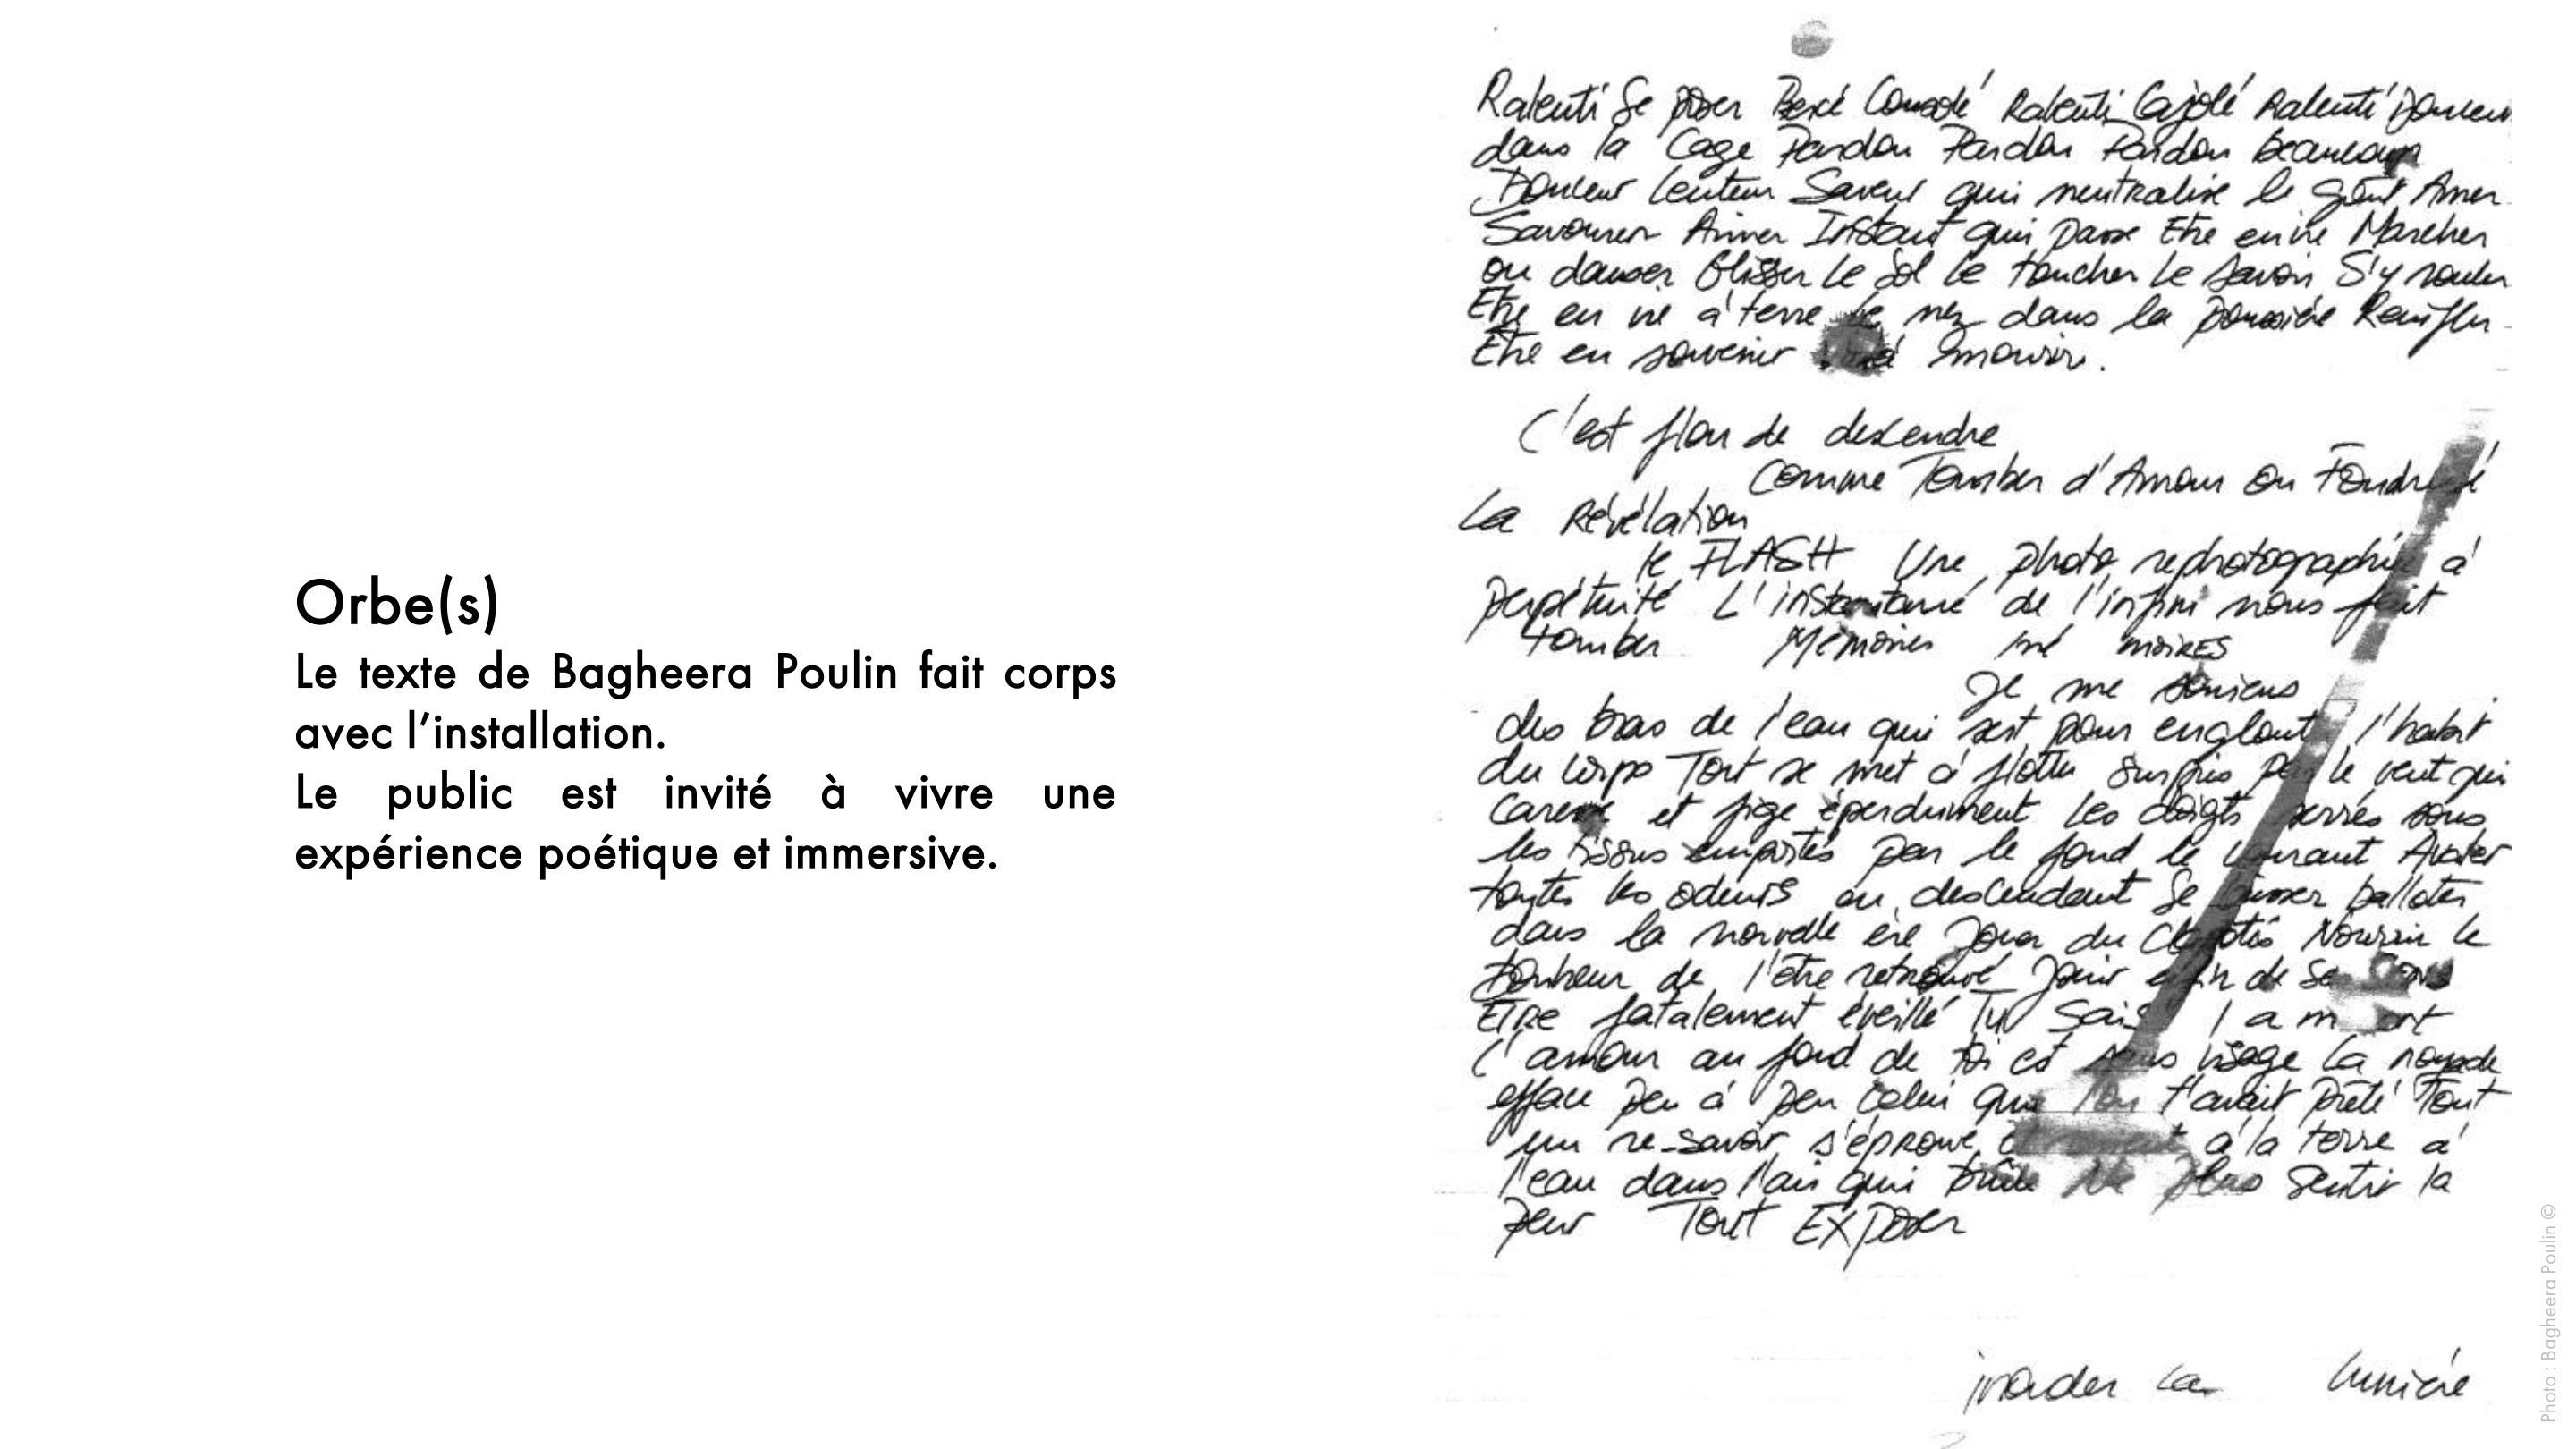 Orbe(s)
Le texte de Bagheera Poulin fait corps
avec l'installation.
Le public est invité à vivre une
expérience poétique et immersive.
Ralenti Se poser Bercé Consolé Ralenti Cajolé Ralenti Douceur
dans la Cage Pardon Pardon Pardon beaucoup
Douceur Lenteur Saveur qui neutralise le goût Amer
Savourer Aimer Instant qui passe Etre en vie Marcher
ou danser Glisser Le Sol Le toucher Le savoir S'y rouler
Etre en vie à terre le nez dans la poussière Renifler
Etre en souvenir mourir.
C'est flou de descendre
Comme Tomber d'Amour ou Foudre
La Révélation
le FLASH Une photo rephotographiée à
perpétuité L'instantané de l'infini nous fait
tomber Mémoires mé moires
Je me souviens
des bras de l'eau qui sert pour engloutir l'habit
du corps Tout se met à flotter surpris par le vent qui
caresse et fige éperdument les doigts serrés sous
les tissus emportés par le fond le courant Avaler
toutes les odeurs en descendant Se laisser balloter
dans la nouvelle ère Jouer du Nourrir le
Bonheur de l'être retrouvé Jouir enfin de
Etre fatalement éveillé Tu Sais l a m ort
L'amour au fond de toi est sans visage La noyade
efface peu à peu celui que l'on t'avait prêté Tout
un re-savoir s'éprouve à la terre à
l'eau dans l'air qui brûle Ne plus Sentir la
peur Tout EXposer
inonder la lumière
Photo : Bagheera Poulin ©